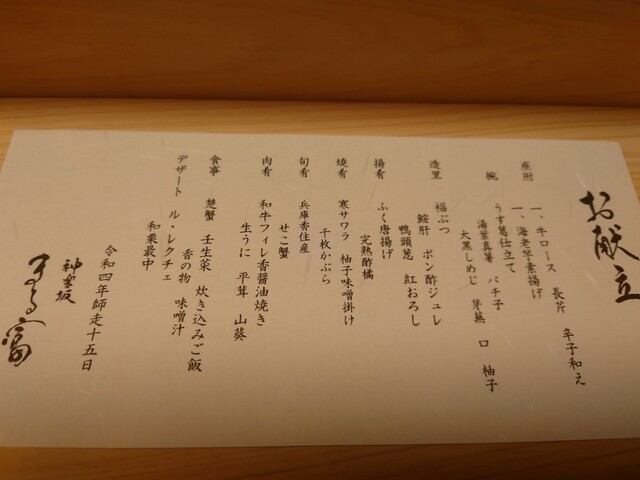 お献立
座附 一、牛ロース 長芹 辛子和え
一、海老芋素揚げ
椀 うす葛仕立て バチ子
湯葉真薯 芽蕪 口 柚子
大黒しめじ
造里 福ぶつ
鮟肝 ポン酢ジュレ
鴨頭葱 紅おろし
揚肴 ふく唐揚げ
完熟酢橘
焼肴 寒サワラ 柚子味噌掛け
千枚かぶら
旬肴 兵庫香住産
せこ蟹
肉肴 和牛フィレ香醤油焼き
生うに 平茸 山葵
食事 楚蟹 壬生菜 炊き込みご飯
香の物 味噌汁
デザート ル・レクチェ
和栗最中
令和四年師走十五日
神楽坂